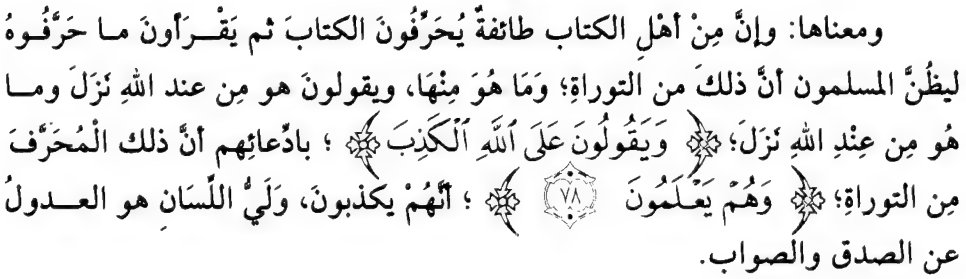 ومعناها: وإنَّ مِنْ أهْلِ الكتاب طائفةٌ يُحَرِّفُونَ الكتابَ ثم يَقْـرَأونَ ما حَرَّفُـوهُ
ليظُنَّ المسلمون أنَّ ذلكَ من التوراةِ؛ وَمَا هُوَ مِنْهَا، ويقولونَ هو مِن عند اللهِ نَزَلَ ومـا
هُو مِن عِنْدِ اللهِ نَزَلَ؛ ﴿ وَيَقُولُونَ عَلَى ٱللَّهِ ٱلْكَذِبَ ﴾ ؛ بادِّعائِهم أنَّ ذلك الْمُحَرَّفَ
مِن التوراةِ؛ ﴿ وَهُمْ يَعْلَمُونَ ٧٨ ﴾ ؛ أنَّهُمْ يكذبونَ، وَلَيُّ اللِّسَانِ هو العـدولُ
عن الصدق والصواب.